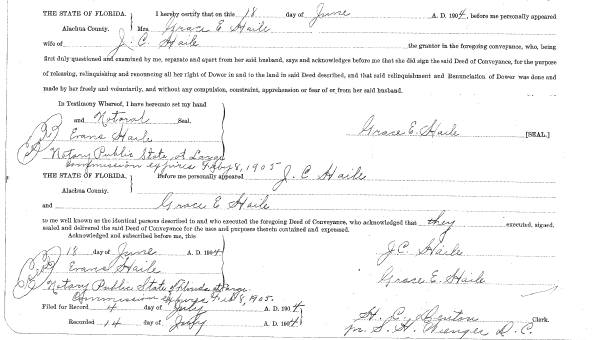 THE STATE OF FLORIDA. I hereby certify that on this 18 day of June A. D. 1904, before me personally appeared
Alachua County. Mrs Grace E Haile
wife of J. C. Haile the grantor in the foregoing conveyance, who, being
first duly questioned and examined by me, separate and apart from her said husband, says and acknowledges before me that she did sign the said Deed of Conveyance, for the purpose
of releasing, relinquishing and renouncing all her right of Dower in and to the land in said Deed described, and that said relinquishment and Renunciation of Dower was done and
made by her freely and voluntarily, and without any compulsion, constraint, apprehension or fear of or from her said husband.
In Testimony Whereof, I have hereunto set my hand
and Notarial Seal.
Evans Haile Grace E. Haile [SEAL.]
Notary Public State at Large
Commission expires Feby 8, 1905
THE STATE OF FLORIDA. Before me personally appeared J. C Haile
Alachua County.
and Grace E Haile
to me well known as the identical persons described in and who executed the foregoing Deed of Conveyance, who acknowledged that they executed, signed,
sealed and delivered the said Deed of Conveyance for the uses and purposes therein contained and expressed.
Acknowledged and subscribed before me, this
18 day of June A. D. 1904 J.C. Haile
Evans Haile Grace E. Haile
Notary Public State of Florida at Large
Commission expires Feb 8, 1905.
Filed for Record 4 day of July A. D. 1904 H. C. Denton Clerk.
Recorded 14 day of July A. D. 1904 pr. S. H. Wienges D. C.